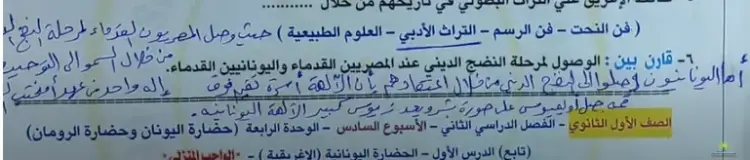 حافظ الإغريق على التراث البطولي في تاريخهم من خلال ..........
( فن النحت – فن الرسم – التراث الأدبي – العلوم الطبيعية ) حيث وصل المصريون القدماء لمرحلة النضج
٦- قارن بين : الوصول لمرحلة النضج الديني عند المصريين القدماء واليونانيين القدماء. من خلال السمو الى التوحيد
أما اليونانيون وصلوا إلى النضج الديني من خلال اعتقادهم بأن الآلهة أسرة تعيش فوق إله واحد من عهد
قمة جبل أوليمبوس على صورة بشر ويعد زيوس كبير الآلهة اليونانية.
الصف الأول الثانوي – الفصل الدراسي الثاني – الأسبوع السادس – الوحدة الرابعة (حضارة اليونان وحضارة الرومان)
(تابع) الدرس الأول – الحضارة اليونانية (الإغريقية) - "الواجب المنزلي"